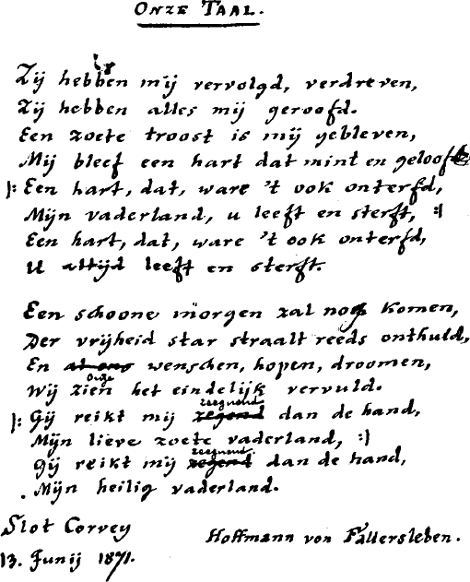 ONZE TAAL.
Zij hebben mij vervolgd, verdreven,
Zij hebben alles mij geroofd.
Een zoete troost is mij gebleven,
Mij bleef een hart dat mint en gelooft
|: Een hart, dat, ware 't ook onterfd,
Mijn vaderland, u leeft en sterft, :|
Een hart, dat, ware 't ook onterfd,
U altijd leeft en sterft.
Een schoone morgen zal nog komen,
Der vrijheid star straalt reeds onthuld,
En al ons wenschen, hopen, droomen,
Onze
Wij zien het eindelijk vervuld.
zeegnend
|: Gij reikt mij zegend dan de hand,
Mijn lieve zoete vaderland, :|
zeegnend
Gij reikt mij zegend dan de hand,
Mijn heilig vaderland.
Slot Corvey
Hoffmann von Fallersleben.
13. Junij 1871.